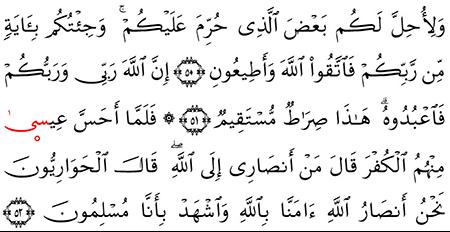 وَلِأُحِلَّ لَكُم بَعْضَ ٱلَّذِى حُرِّمَ عَلَيْكُمْ ۚ وَجِئْتُكُم بِـَٔايَةٍ
مِّن رَّبِّكُمْ فَٱتَّقُوا۟ ٱللَّهَ وَأَطِيعُونِ ﴿٥٠﴾ إِنَّ ٱللَّهَ رَبِّى وَرَبُّكُمْ
فَٱعْبُدُوهُ ۗ هَـٰذَا صِرَٰطٌ مُّسْتَقِيمٌ ﴿٥١﴾ ۞ فَلَمَّآ أَحَسَّ عِيسَىٰ
مِنْهُمُ ٱلْكُفْرَ قَالَ مَنْ أَنصَارِىٓ إِلَى ٱللَّهِ ۖ قَالَ ٱلْحَوَارِيُّونَ
نَحْنُ أَنصَارُ ٱللَّهِ ءَامَنَّا بِٱللَّهِ وَٱشْهَدْ بِأَنَّا مُسْلِمُونَ ﴿٥٢﴾